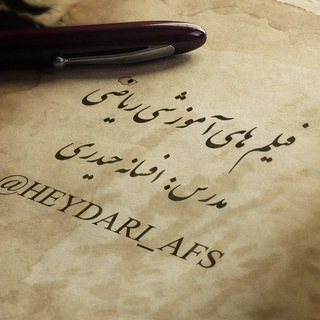 فیلم های آموزشی ریاضی
مدرس: افسانه حیدری
@HEYDARI_AFS